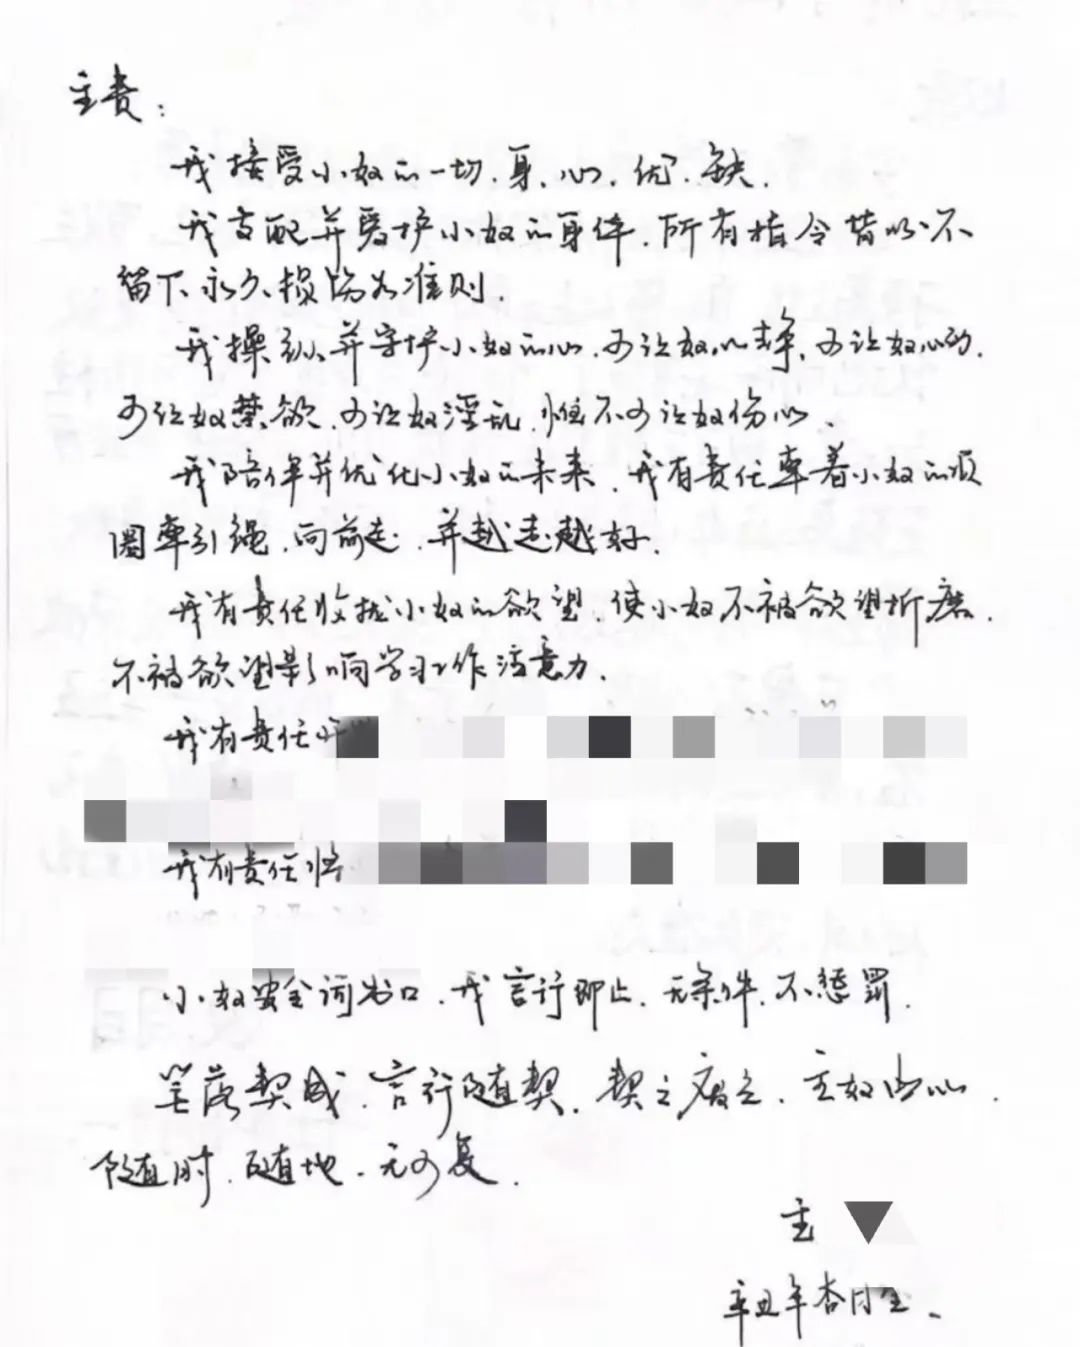 主责：
我接受小奴的一切.身.心.优.缺.
我支配并爱护小奴的身体.所有指令皆以不
留下永久损伤为准则.
我操纵并守护小奴的心.可让奴心静.可让奴心动.
可让奴禁欲.可让奴淫乱.惟不可让奴伤心.
我陪伴并优化小奴的未来.我有责任牵着小奴的项
圈牵引绳.向前走.并越走越好.
我有责任收拢小奴的欲望.使小奴不被欲望折磨.
不被欲望影响学习工作注意力.
我有责任
我有责任将
小奴安全词出口.我言行即止.无条件.不惩罚.
笔落契成.言行随契.契之废立.主奴由心.
随时.随地.无可复.
主
辛丑年杏月